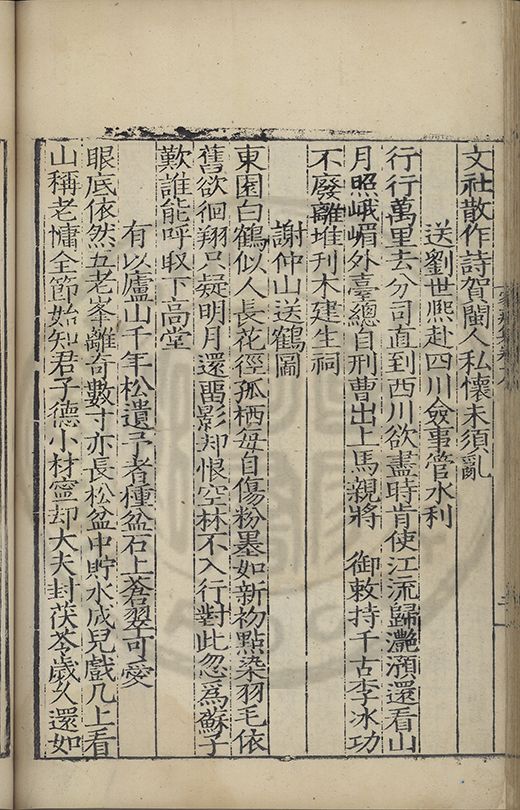 文社散作詩賀閩人私懷未須亂
送劉世熈赴四川僉事管水利
行行萬里去分司直到西川欲盡時肯使江流歸灔澦還看山
月照峨嵋外臺總自刑曹出上馬親將　御敕持千古李冰功
不廢離堆刊木建生祠
謝仲山送鶴圖
東園白鶴似人長花徑孤栖每自傷粉墨如新初點染羽毛依
舊欲徊翔只疑明月還留影却恨空林不入行對此忽爲蘇子
歎誰能呼取下高堂
有以廬山千年松遺予者種盆石上蒼翠可愛
眼底依然五老峯離奇數寸亦長松盆中貯水成兒戲几上看
山稱老慵全節始知君子德小材寧却大夫封茯苓歲久還如